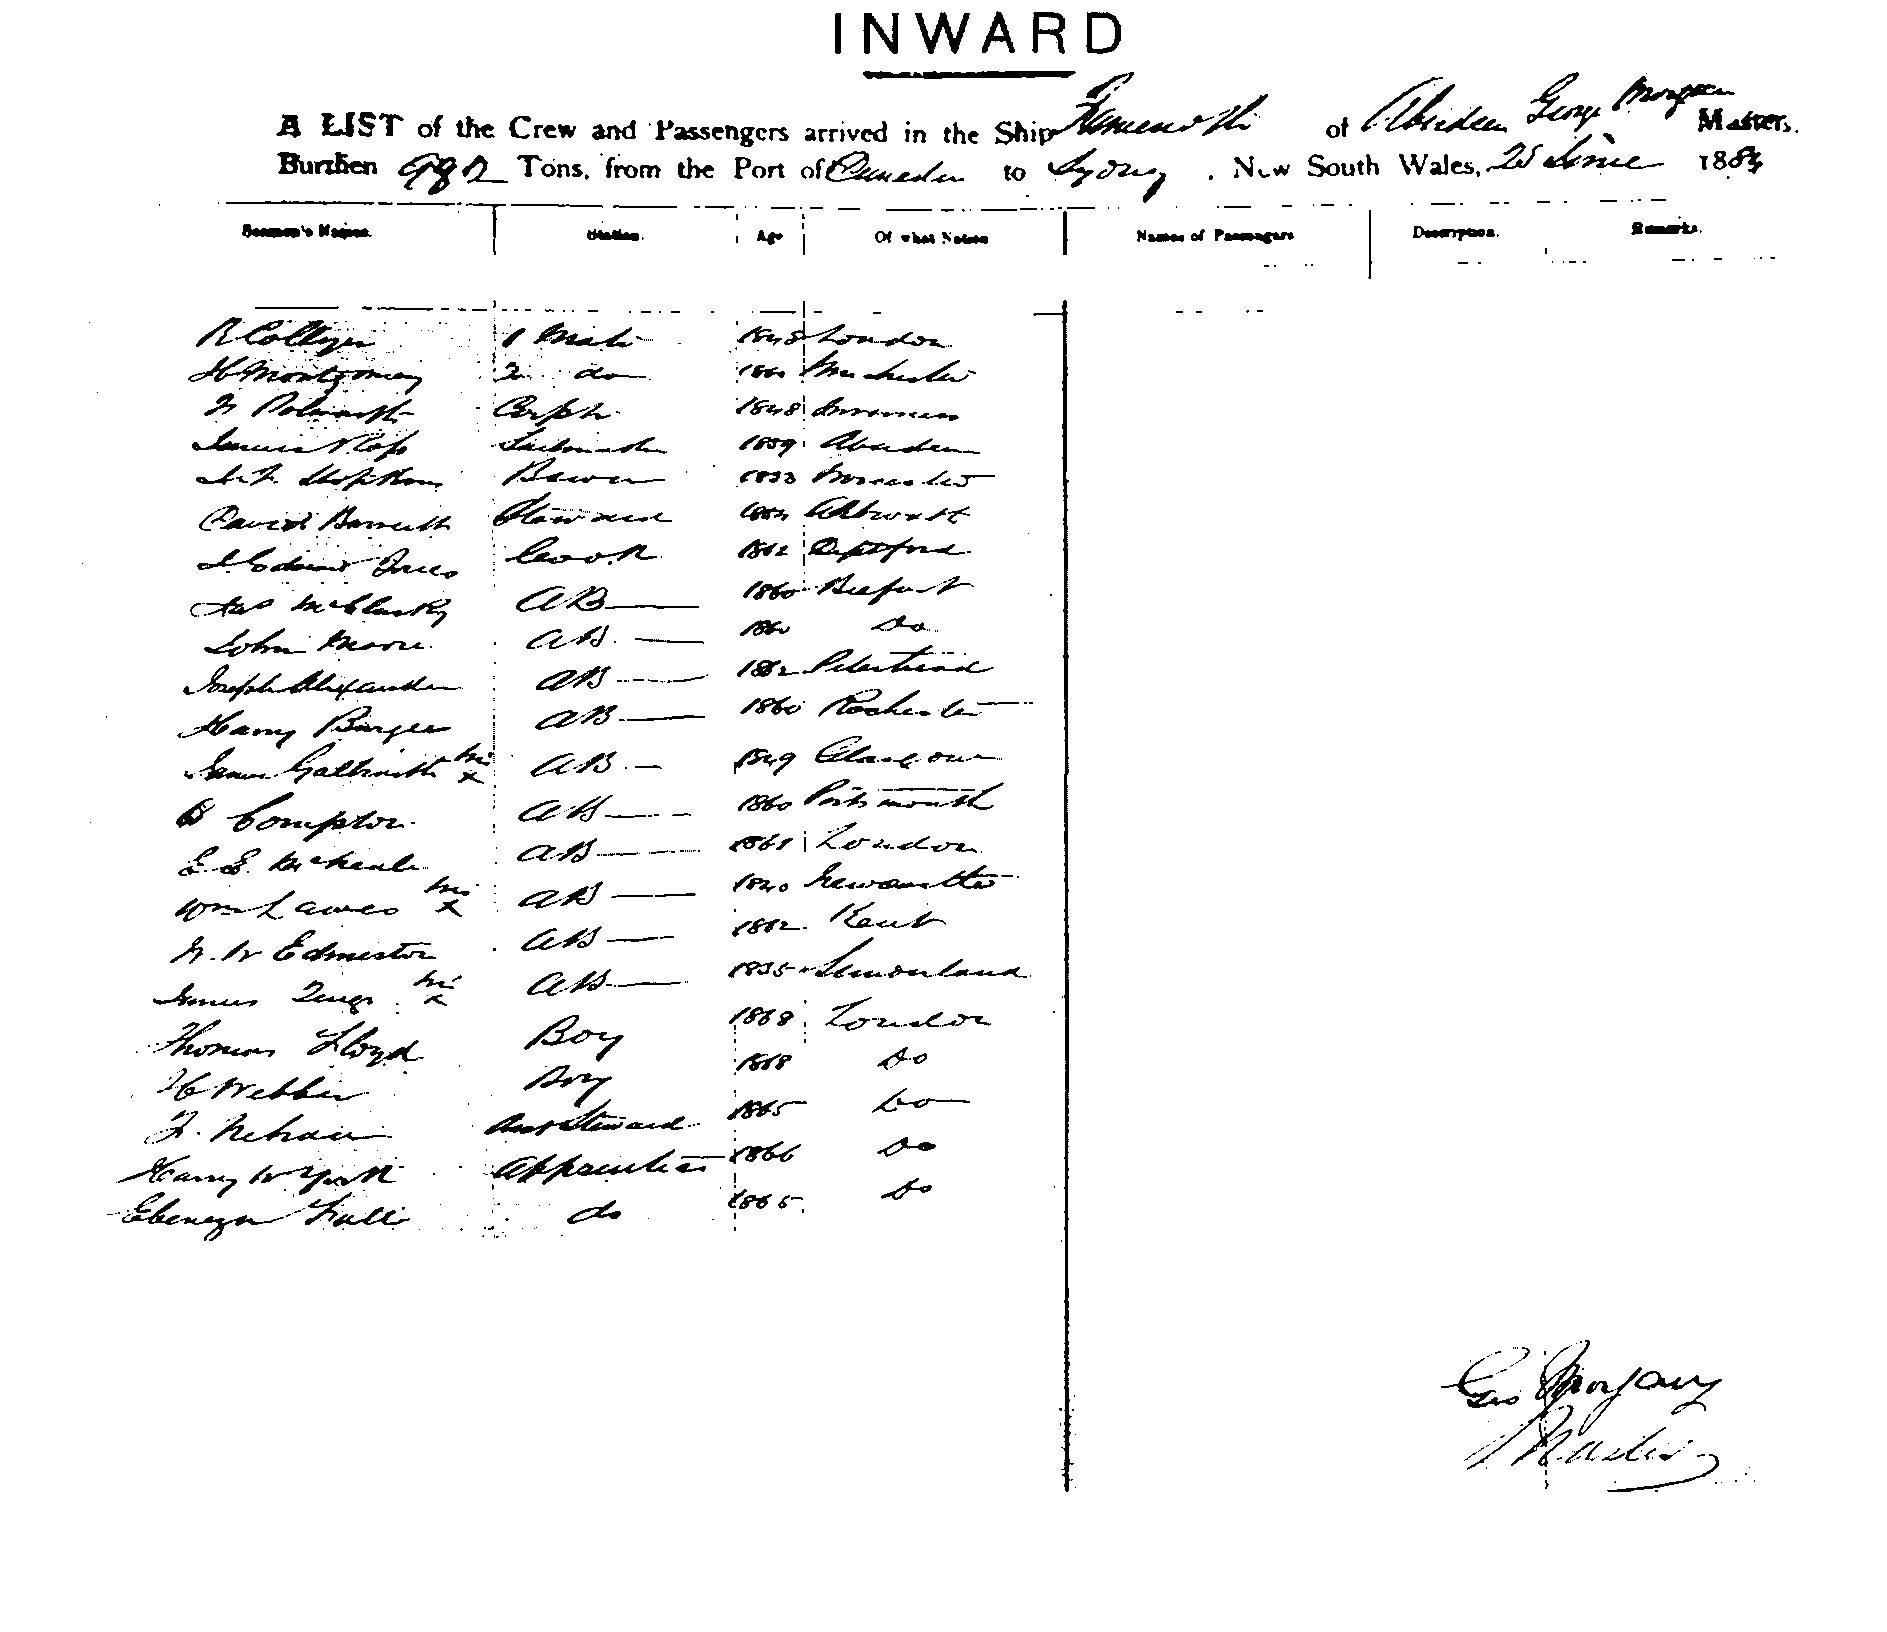 INWARD
A LIST of the Crew and Passengers arrived in the Ship of Aberdeen George Morgan Masters.
Burthen Tons, from the Port of Dunedin to Sydney, New South Wales, 25 June 188
Seamen's Names. Station. Age Of what Nation Names of Passengers Description. Remarks.
R Collyer 1 Mate 1848 London
H Montgomery 2 do 1860 Manchester
Polworth Carptr 1848 Inverness
James N Ross Sailmaker 1859 Aberdeen
Hopkins Bosun 1853 Worcester
David Barnett Steward
Cook 1862 Deptford
Jas McClusky AB 1860 Belfast
John Moore AB 1860 Do
Joseph Alexander AB 1862 Peterhead
Harry Burgess AB 1860 Rochester
James Galbraith his x AB 1849 Glasgow
Compton AB 1860 Portsmouth
E. E. AB 1861 London
Wm Lawes his x AB 1840 Newcastle
W Edmeston AB 1862 Kent
James his x AB 1835
Thomas Lloyd Boy 1868 London
H Webber Boy 1868 Do
Asst Steward 1865 Do
Harry W York Apprentice 1866 Do
Ebenezer do 1865 Do
Geo Morgan
Master